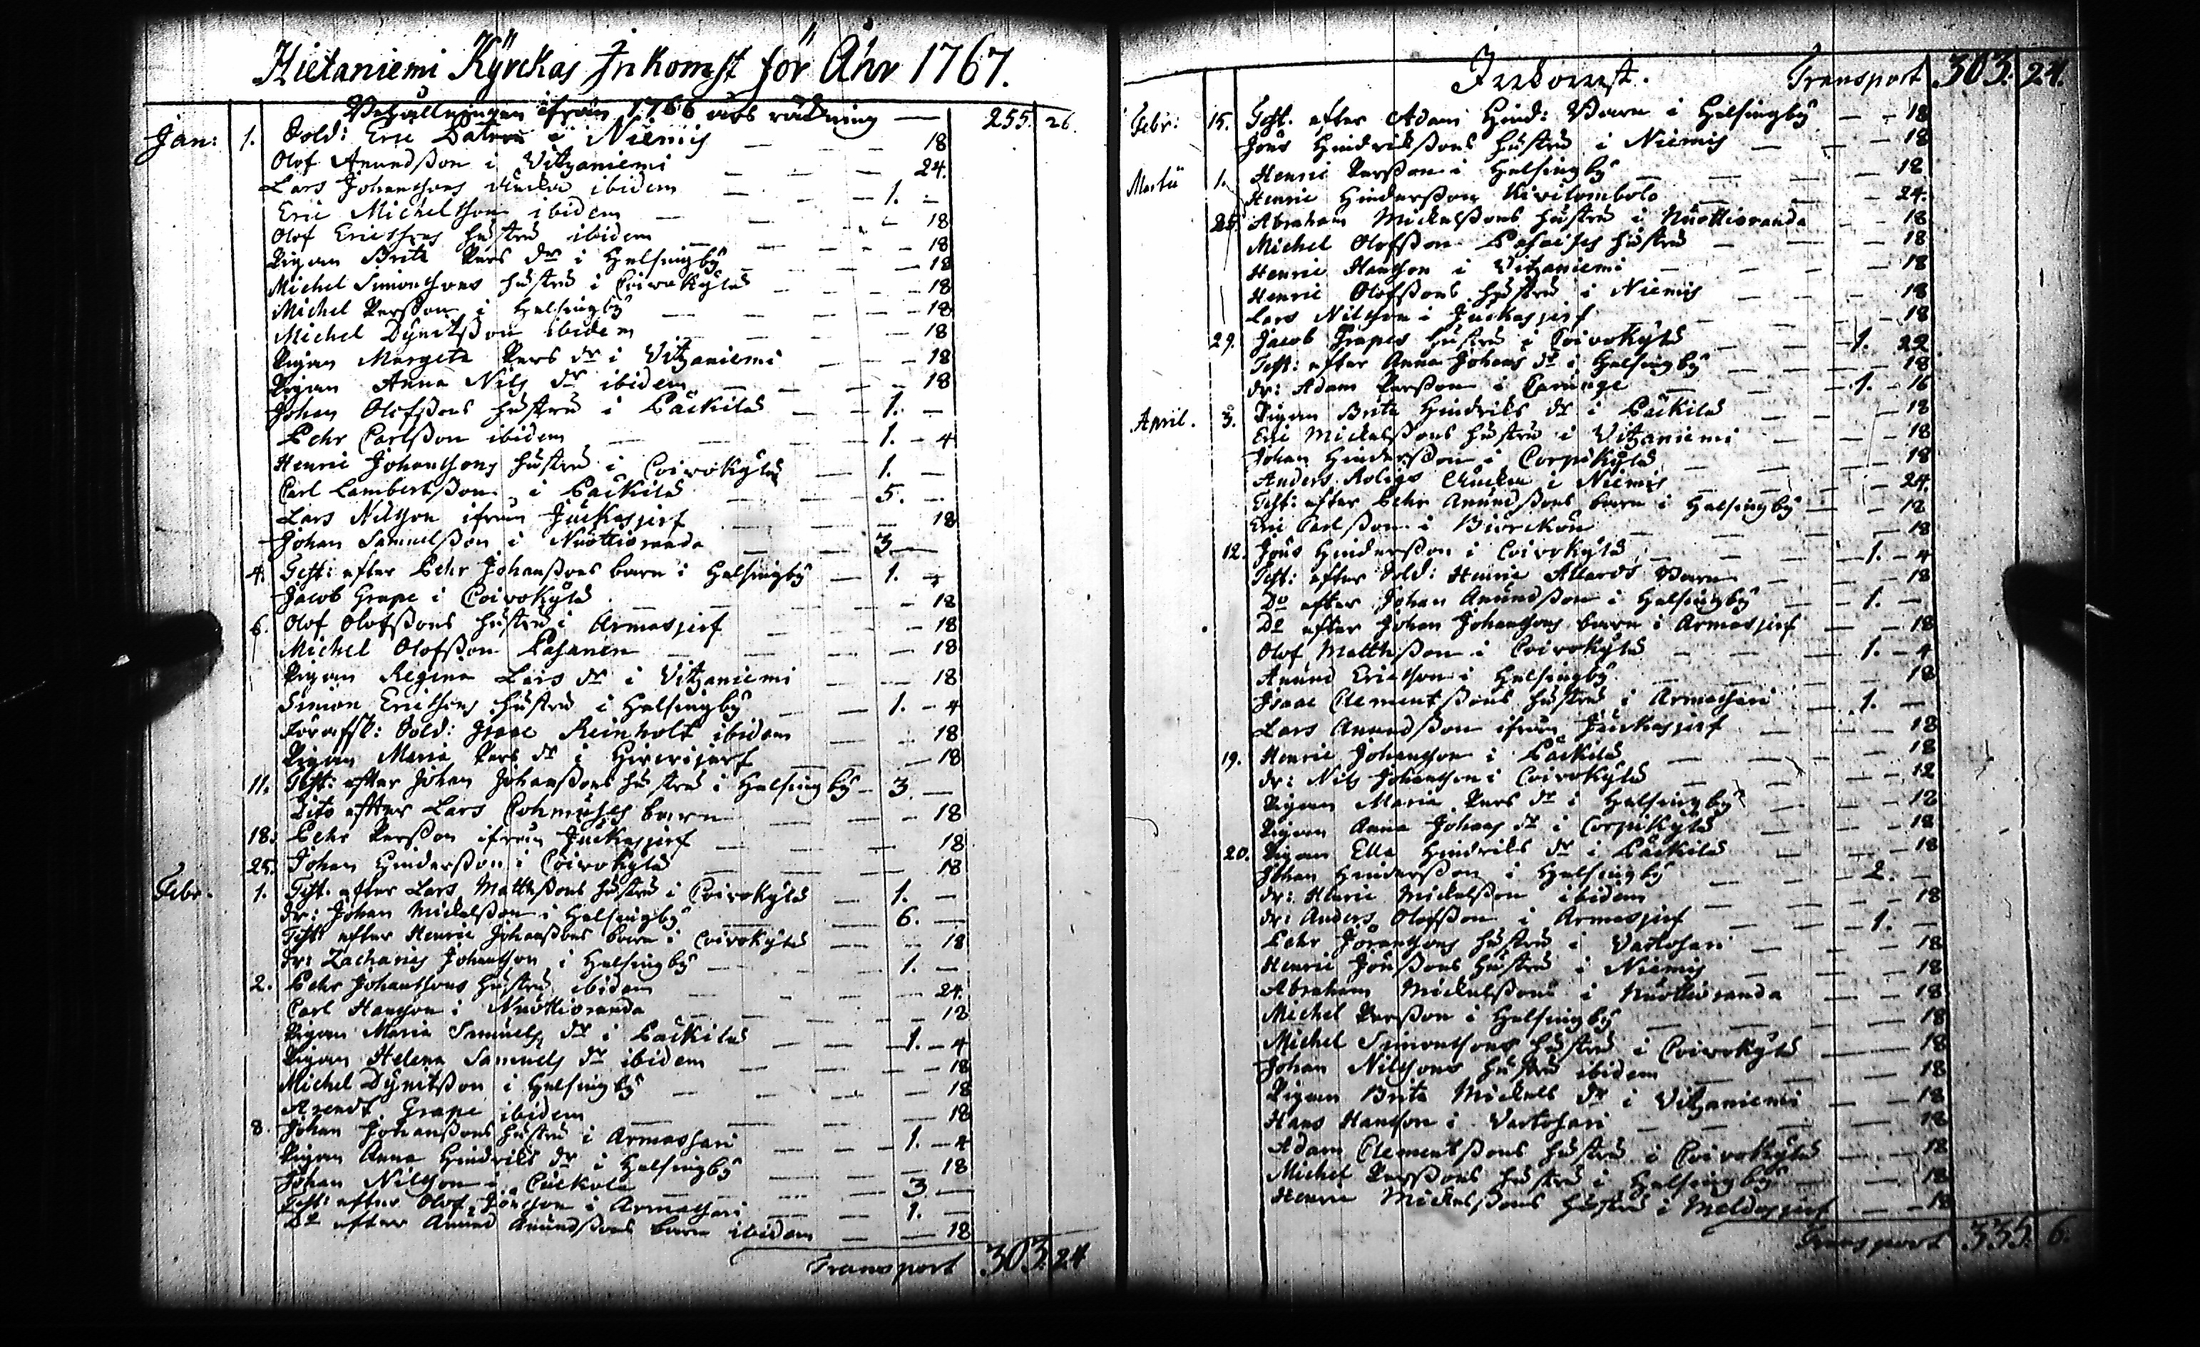 Hietaniemi Kyrckas Inkomst för Åhr 1767.
Behållningen ifrån 1766 års räkning — 255. 26
Jan: 1. Sold: Eric Datron i Niemis — 18
Olof Anundßon i Vitzaniemi — 24.
Lars Johansßons ibidem — 1. —
Eric Michelsson ibidem — 18
Olof Ericssons hustru ibidem — 18
Pigan Brita Pers dr i Helsingby — 18
Michel Simonssons hustru i Coivokylä — 18
Michel Perßon i Helsingby — 18
Michel Dynitßon ibidem — 18
Pigan Margeta Pers dr i Vitzaniemi — 18
Pigan Anna Nils dr ibidem — 18
Johan Olofßons hustru i Päckilä — 1. —
Pehr Carlßon ibidem — 1. - 4
Henric Johanssons hustru i Coivokylä — 1. —
Carl Lambertßon i Päckilä — 5. —
Lars Nilsson ifrån Juckasjerf — 18
Johan Samuelßon i Nuottioranda — 3 —
4. Test: efter Pehr Johanßons barn i Helsingby — 1. —
Jacob Grape i Coivokylä — 18
6. Olof Olofßons hustru i Armasjerf — 18
Michel Olofßon Pasanen — 18
Pigan Regina Lars dr i Vitzaniemi — 18
Simon Ericssons hustru i Helsingby — 1. - 4
Sold: Isaac Reinholt ibidem — 18
Pigan Maria Pers dr i Hirvisjerf — 18
11. Test: efter Johan Johanßons hustru i Helsingby — 3. —
Dito efter Lars barn — 18
18. Pehr Perßon ifrån Juckasjerf — 18
25. Johan Hinderßon i Coivokylä — 18
Febr. 1. Test. efter Lars Matthßons hustru i Coivokylä — 1. —
dr: Johan Mickelßon i Helsingby — 6. —
Test: efter Henric Johanßons barn i Coivokylä — 18
dr: Zacharis Johansson i Helsingby — 1. —
2. Pehr Johanssons hustru ibidem — 24.
Carl Hansson i Nuottioranda — 18
Pigan Maria Samuels dr i Päckilä — 1. - 4
Pigan Helena Samuels dr ibidem — 18
Michel Dynitßon i Helsingby — 18
Arendt Grape ibidem — 18
8. Johan Johanßons hustru i Armassari — 1. - 4
Pigan Anna Hindriks dr i Helsingby — 18
Johan Nilsson i — 3 —
Test: efter Olof Jönsson i Armassari — 1. —
Do efter Anund Anundßons barn ibidem — 18
Transport 303. 24
Inkomst. Transport 303. 24.
Febr: 15. Test. efter Adam Hind: Barn i Helsingby — 18
Jöns Hindrikßons hustru i Niemis — 18
Martii 1. Henric Perßon i Helsingby — 18
Henric Hinderßon Kivilombolo — 24.
25. Abraham Mickelßons hustru i Nuottioranda — 18
Michel Olofßon hustru — 18
Henric Hansson i Vitzaniemi — 18
Henric Olofßons hustru i Niemis — 18
Lars Nilsson i Juckasjerf — 18
29. Jacob Grapes hustru i Coivokylä — 1. 22
Test: efter Anna Johans dr i Helsingby — 18
dr: Adam Perßon i Carunge — 1. - 16
April. 3. Pigan Brita Hindriks dr i Päckilä — 18
Eric Mickelßons hustru i Vitzaniemi — 18
Johan Hinderßon i Corpikylä — 18
Anders Roligs i Niemis — 24.
Test: efter Pehr Anundßons barn i Helsingby — 18
Eric Carlßon i Biörckön — 18
12. Jöns Hinderßon i Coivokylä — 1. - 4
Test: efter Sold: Henric Allards Barn — 18
Do efter Johan Anundßon i Helsingby — 1. —
Do efter Johan Johanssons barn i Armasjerf — 18
Olof Matthßon i Coivokylä — 1. - 4
Anund Ericsson i Helsingby — 18
Isaac Clementßons hustru i Armassari — 1. —
Lars Anundßon ifrån Juckasjerf — 18
19. Henric Johansson i Päckilä — 18
dr: Nils Johansson i Coivokylä — 18
Pigan Maria Pers dr i Helsingby — 18
Pigan Anna Johans dr i Corpikylä — 18
20. Pigan Ella Hindriks dr i Päckilä — 18
Johan Hinderßon i Helsingby — 2. —
dr: Henric Mickelßon ibidem — 18
dr: Anders Olofßon i Armasjerf — 1. —
Pehr Jöranssons hustru i Vartosari — 18
Henric Jönßons hustru i Niemis — 18
Abraham Mickelßons i Nuottioranda — 18
Michel Perßon i Helsingby — 18
Michel Simonssons hustru i Coivokylä — 18
Johan Nilssons hustru ibidem — 18
Pigan Brita Mickels dr i Vitzaniemi — 18
Hans Hansson i Vartosari — 18
Adam Clementßons hustru i Coivokylä — 18
Michel Perßons hustru i Helsingby — 18
Henric Mickelßons hustru i Meldosjerf — 18
Transport 335. 6.